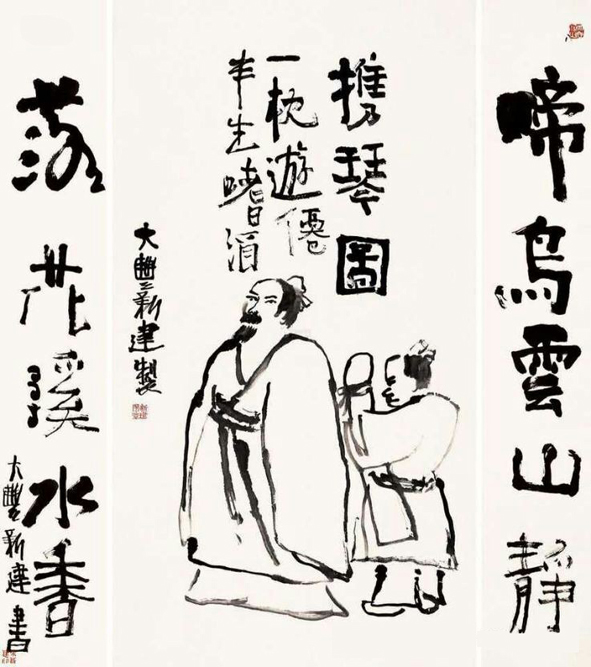 啼鳥雲山靜
携琴圖
一枕遊僊
半生嗜酒
大豐新建製
落花溪水香
大豐新建書